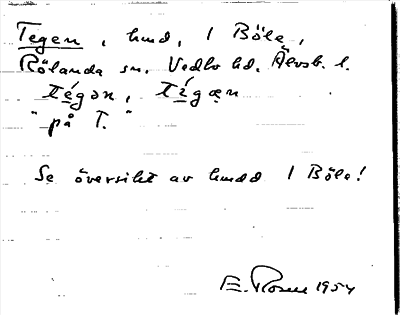 Tegen, hmd, 1 Böle,
Rölanda sn. Vedbo hd. Älvsb. l.
tégən, tígæn
"på T."
Se översikt av hmdd 1 Böle!
E. Rosell 1954